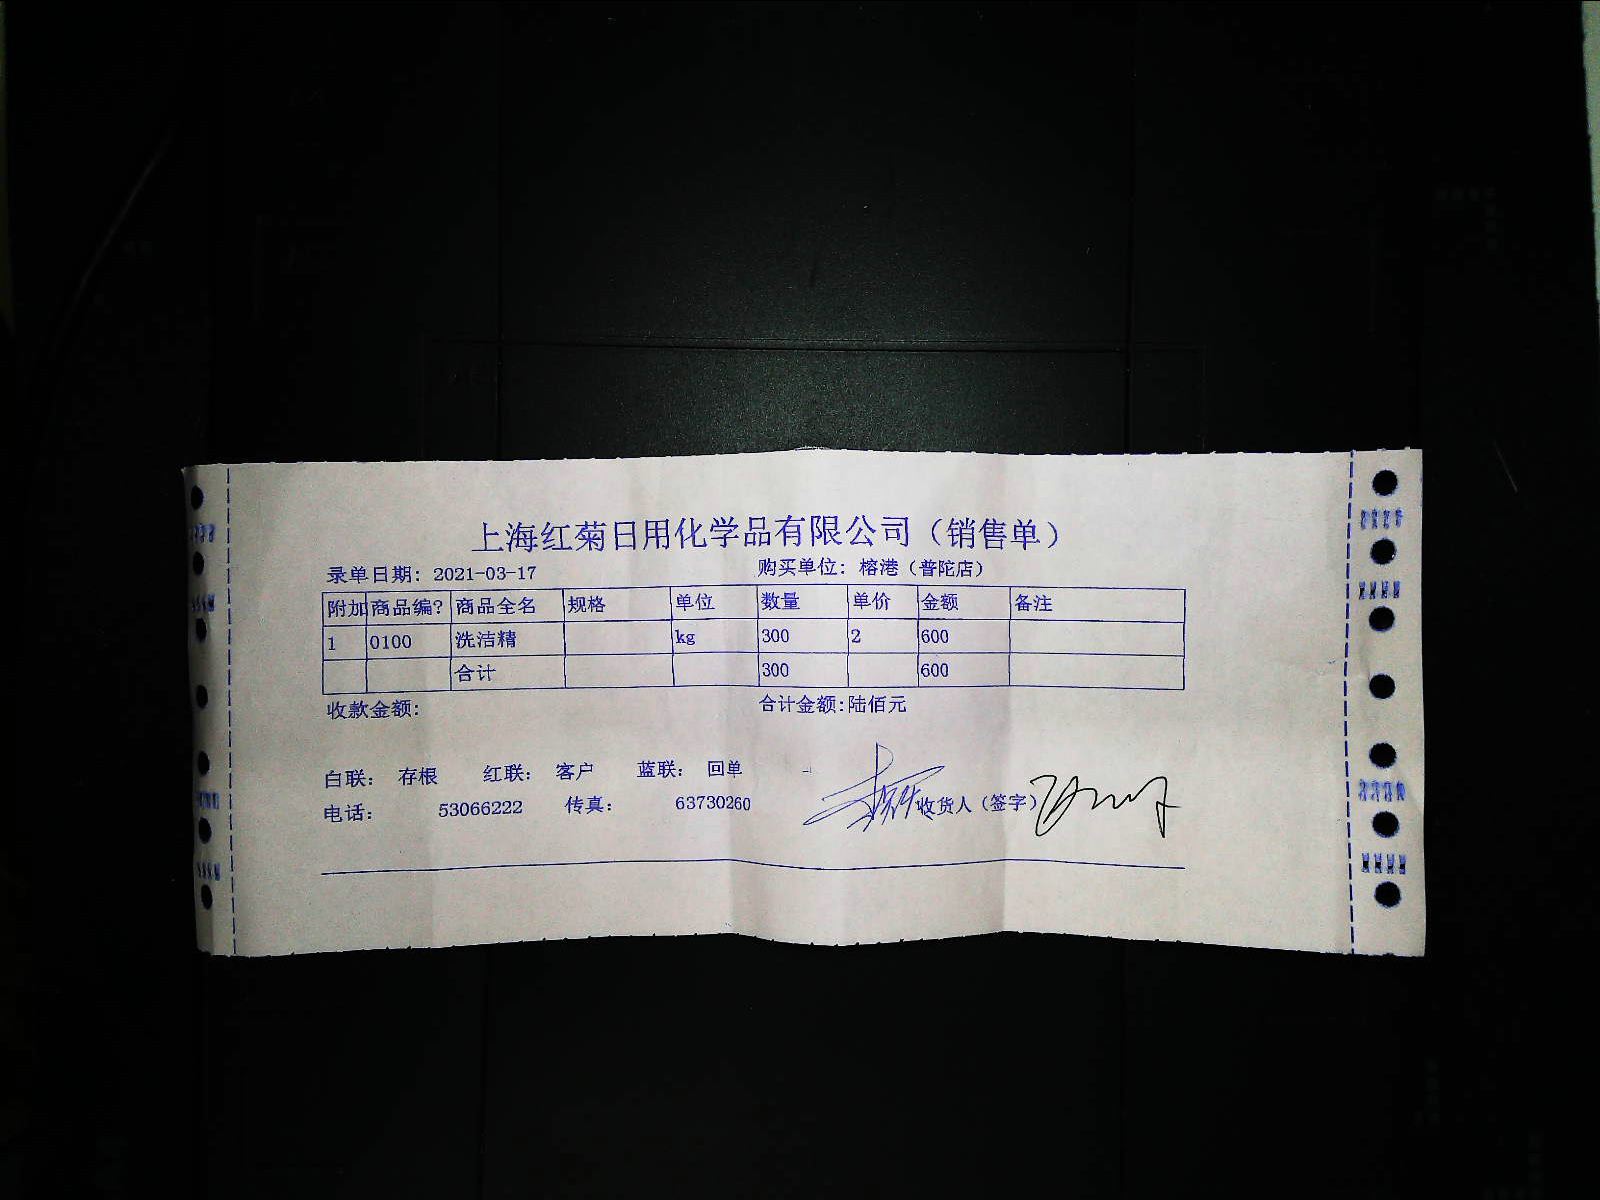 上海红菊日用化学品有限公司（销售单）
录单日期: 2021-03-17 购买单位: 榕港（普陀店）
附加 商品编? 商品全名 规格 单位 数量 单价 金额 备注
1 0100 洗洁精 kg 300 2 600
合计 300 600
收款金额: 合计金额:陆佰元
白联: 存根 红联: 客户 蓝联: 回单
电话: 53066222 传真: 63730260 收货人（签字）